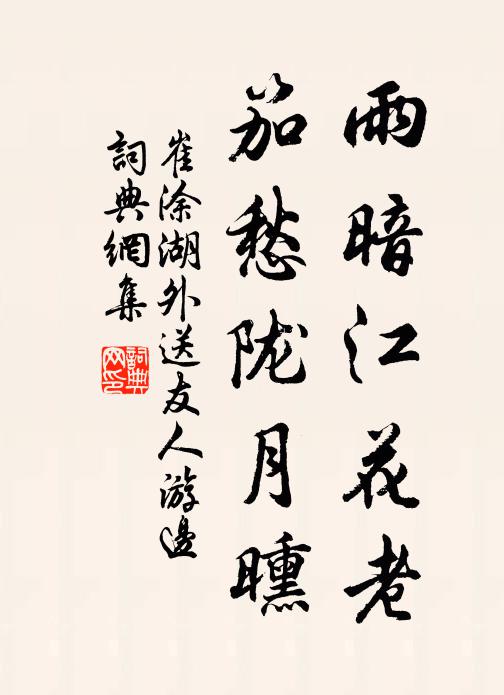 雨暗江花老
笳愁陇月曛
崔涂湖外送友人游邊
詞典網集
詞典网印